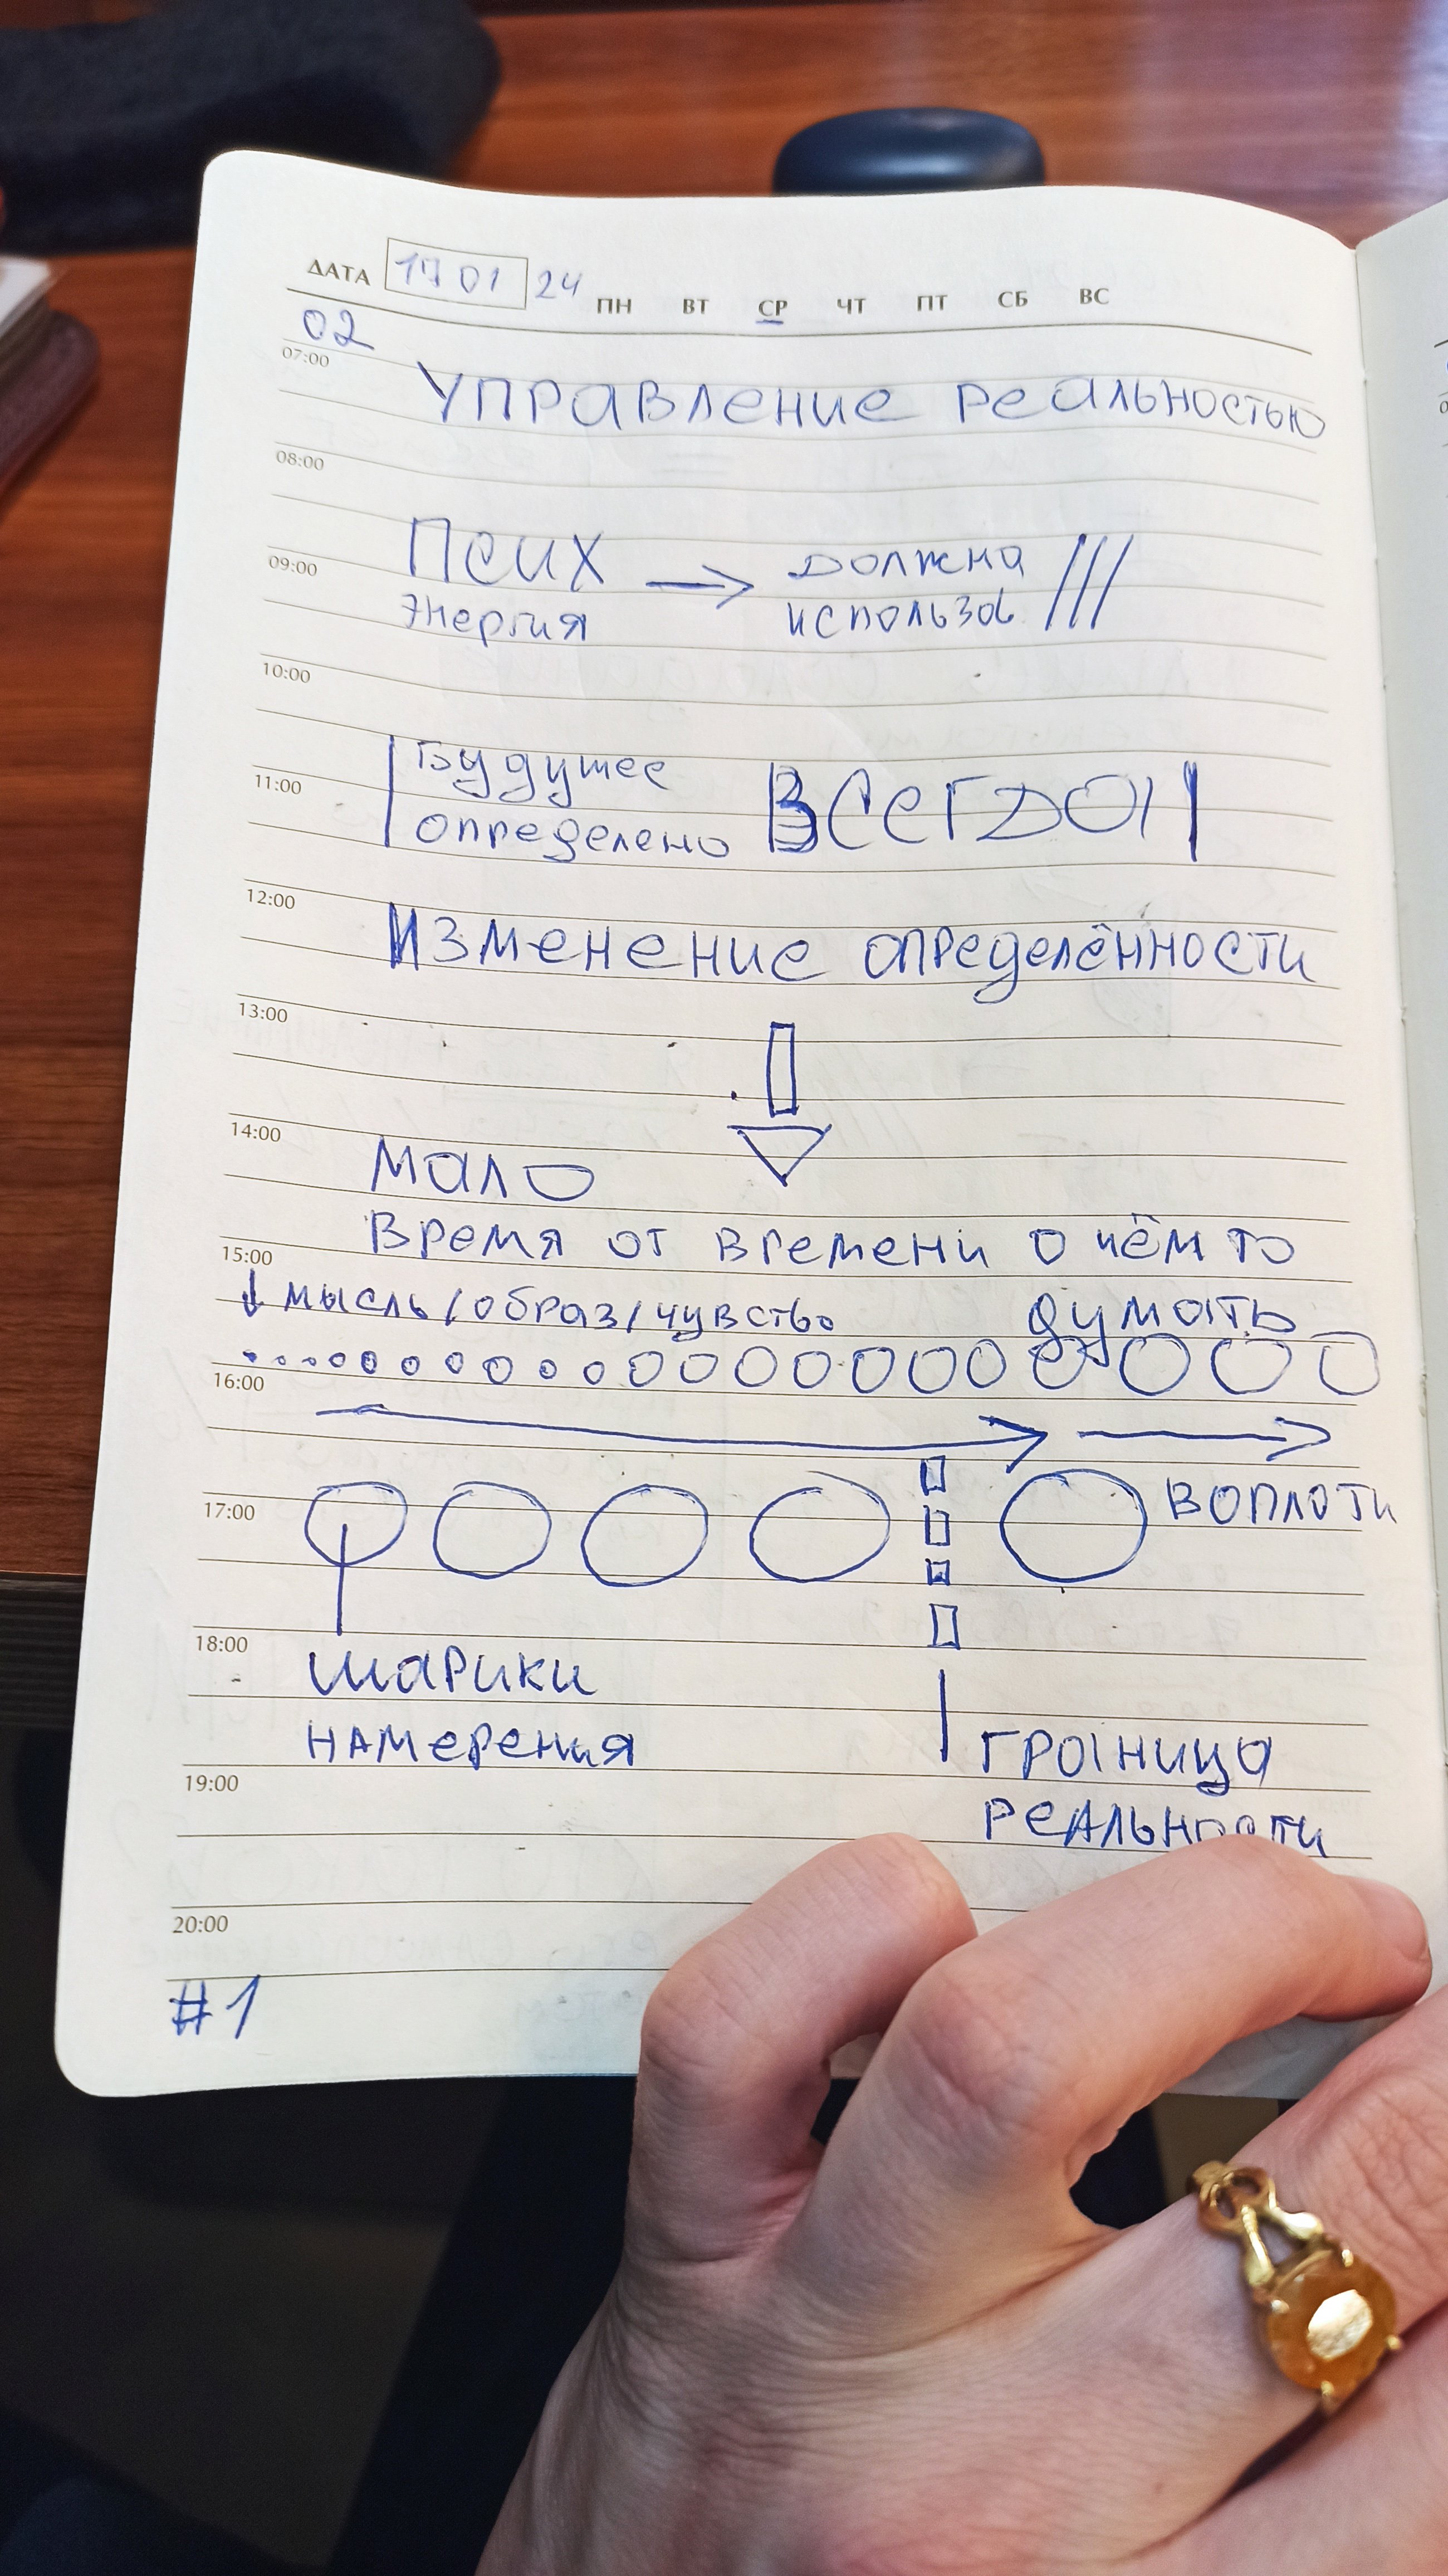 ДАТА 17 01 24 ПН ВТ СР ЧТ ПТ СБ ВС
02
07:00
Управление реальностью
08:00
Псих должна
09:00
энергия использов
10:00
Будущее
11:00
определено ВСЕГДА
12:00
Изменение определённости
13:00
14:00
мало
Время от времени о чём то
15:00
мысль/образ/чувство думать
16:00
17:00
воплоти
18:00
шарики
намерения граница
19:00
реальности
20:00
#1